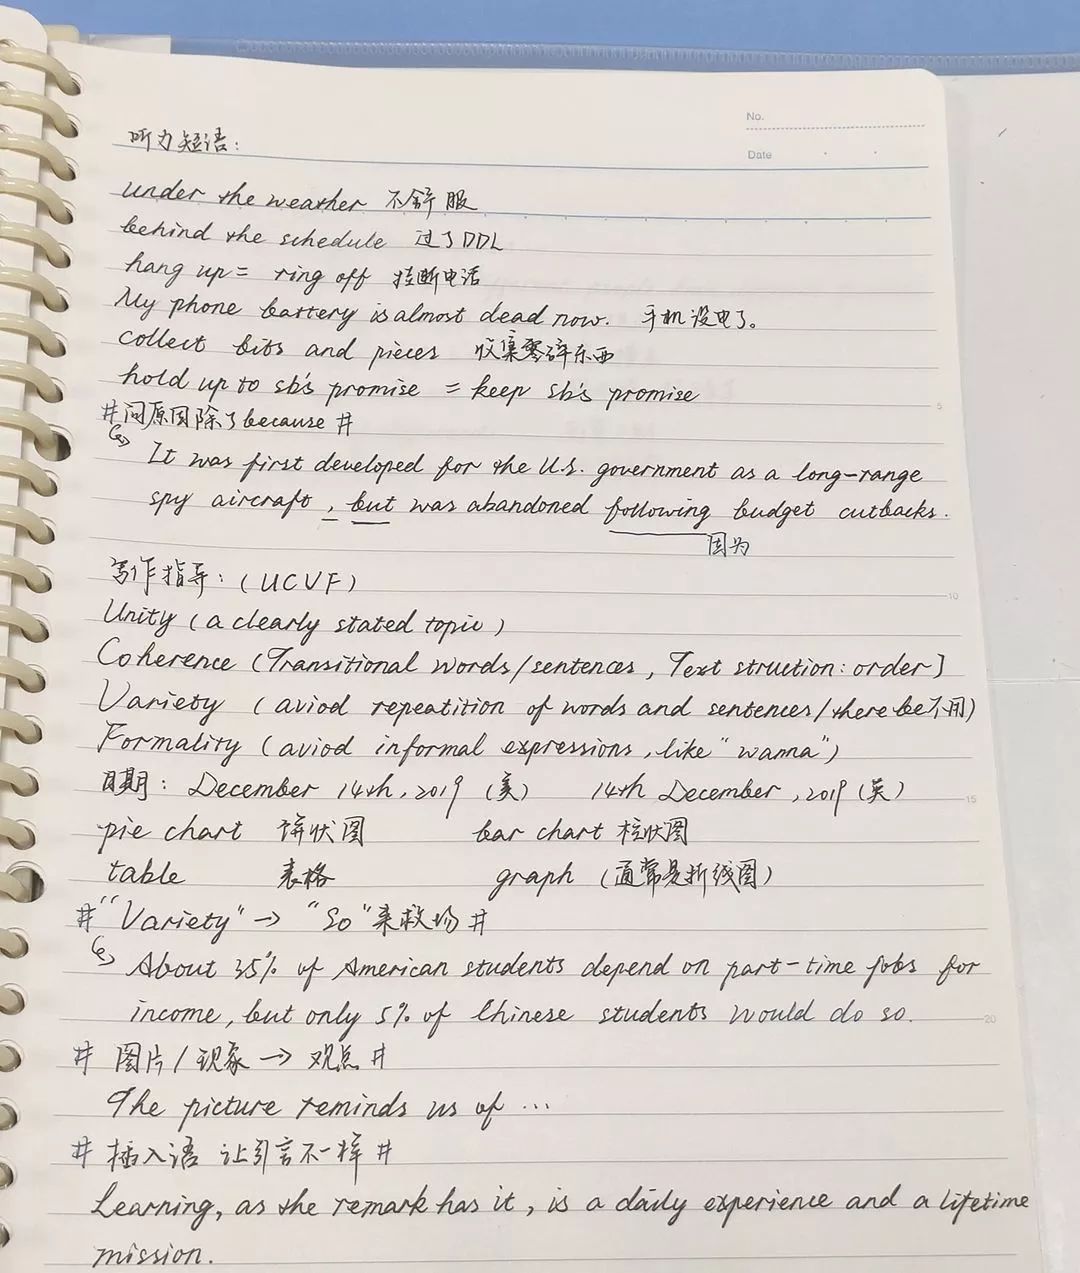 No.
Date
听力短语:
under the weather 不舒服
behind the schedule 过了DDL
hang up = ring off 挂断电话
My phone battery is almost dead now. 手机没电了。
collect bits and pieces 收集零碎东西
hold up to sb's promise = keep sb's promise
#问原因除了because #
It was first developed for the U.S. government as a long-range
spy aircraft, but was abandoned following budget cutbacks.
因为
写作指导: (UCVF)
Unity (a clearly stated topic)
Coherence (Transitional words/sentences, Text struction: order)
Variety (aviod repeatition of words and sentences/there be不用)
Formality (aviod informal expressions, like "wanna")
日期: December 14th, 2019 (美) 14th December, 2019 (英)
pie chart 饼状图 bar chart 柱状图
table 表格 graph (通常是折线图)
#"Variety" → "so"来救场 #
About 35% of American students depend on part-time jobs for
income, but only 5% of Chinese students would do so.
# 图片/现象 → 观点 #
The picture reminds us of ...
# 插入语 让引言不一样 #
Learning, as the remark has it, is a daily experience and a lifetime
mission.
5
10
15
20